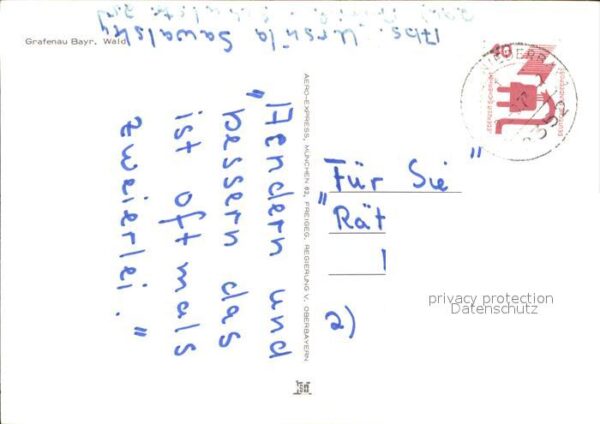 Grafenau Bayr. Wald
Abs. Ursula Sawalsky
AERO-EXPRESS, MÜNCHEN 62, FREIGEG. REGIERUNG V. OBERBAYERN
„Aendern und
bessern das
ist oftmals
zweierlei."
„Für Sie"
„Rät
!
2)
privacy protection
Datenschutz